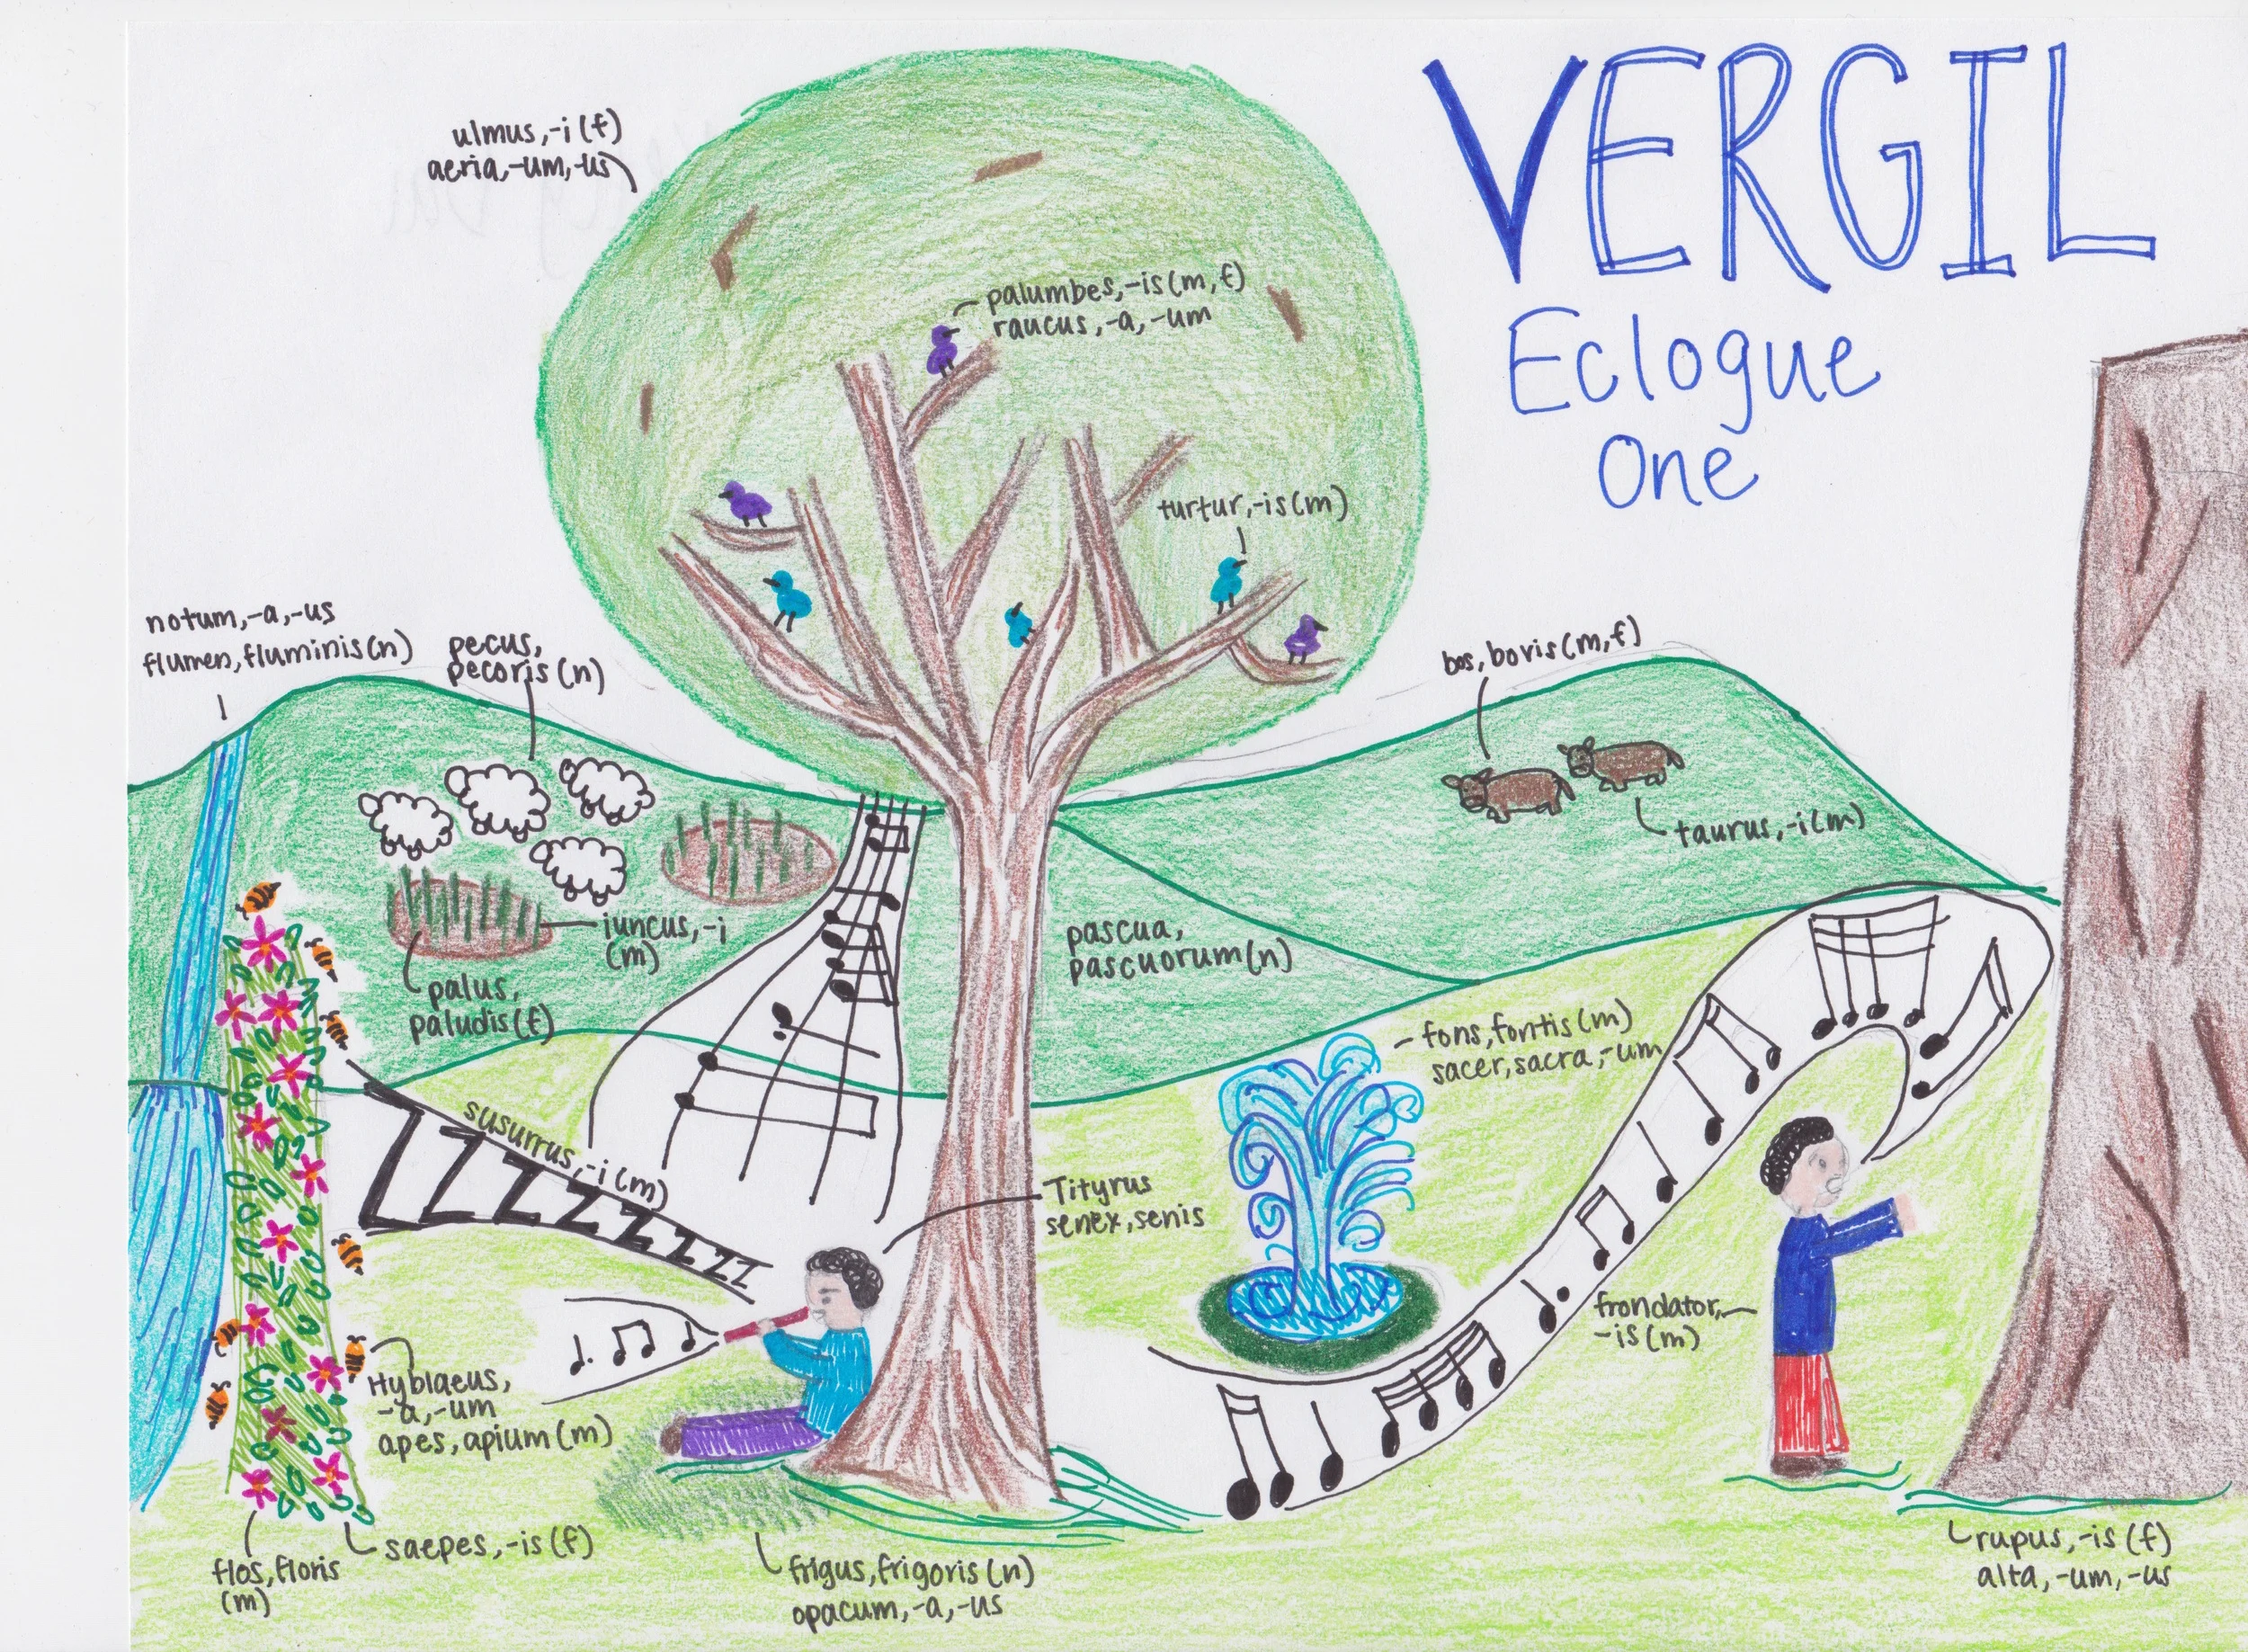 VERGIL
Eclogue
One
ulmus,-i (f)
aeria,-um,-us
palumbes,-is (m,f)
raucus,-a,-um
turtur,-is (m)
notum,-a,-us
flumen, fluminis (n)
pecus,
pecoris (n)
bos, bovis (m,f)
taurus,-i (m)
iuncus,-i
(m)
palus,
paludis (f)
pascua,
pascuorum (n)
fons, fontis (m)
sacer, sacra,-um
susurrus,-i (m)
ZZZZZZZZZ
Tityrus
senex, senis
frondator,
-is (m)
Hyblaeus,
-a,-um
apes, apium (m)
flos, floris
(m)
saepes,-is (f)
frigus, frigoris (n)
opacum,-a,-us
rupus,-is (f)
alta,-um,-us